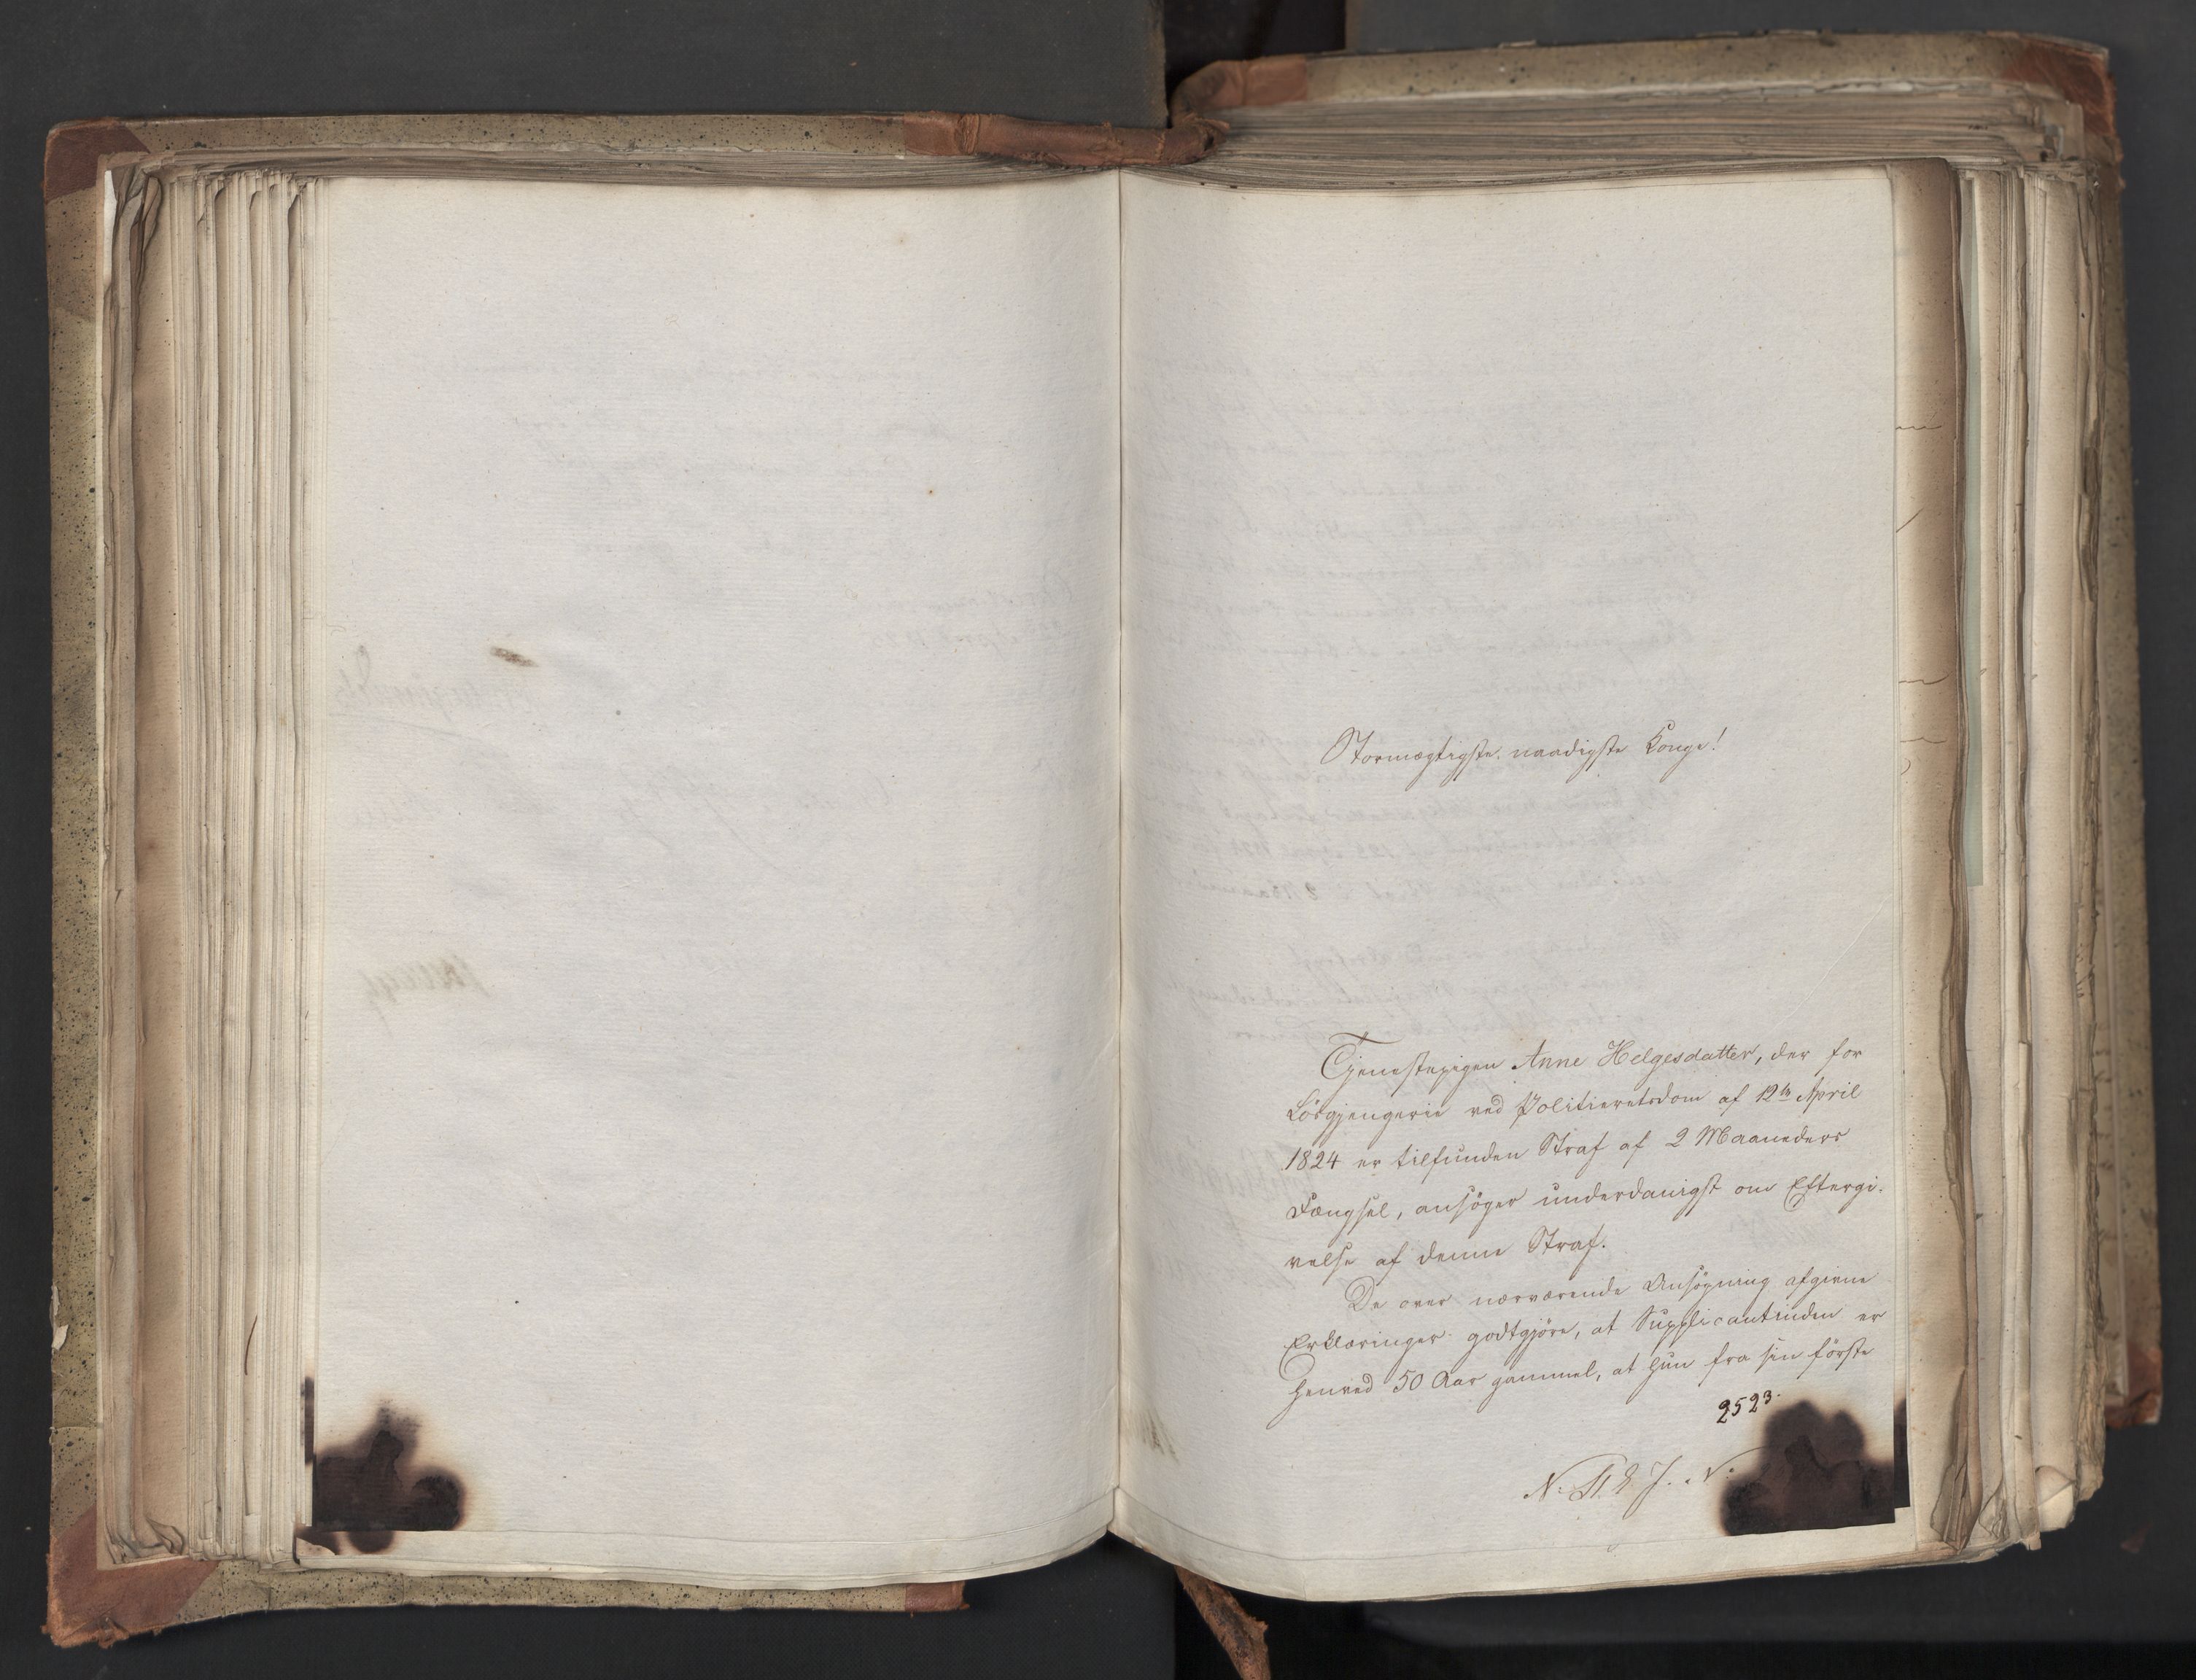 Stormægtigste, naadigste Konge!
Tjenestepigen Anne Helgesdatter, der for
Lösgjengerie ved Politieretsdom af 12te April
1824 er tilfunden Straf af 2 Maaneders
Fængsel, ansöger underdanigst om Eftergi-
velse af denne Straf.
De over nærværende Ansögning afgivne
Erklæringer godtgjöre, at Supplicantinden er
henved 50 Aar gammel, at hun fra sin förste
2523.